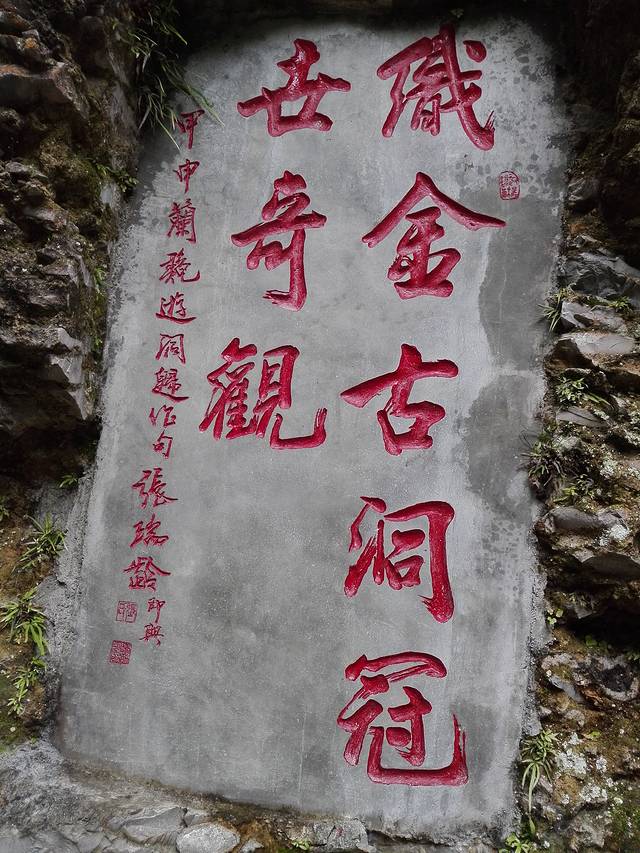 織金古洞冠
世奇觀
甲申蘭遊洞歸作句
張瑞齡即興